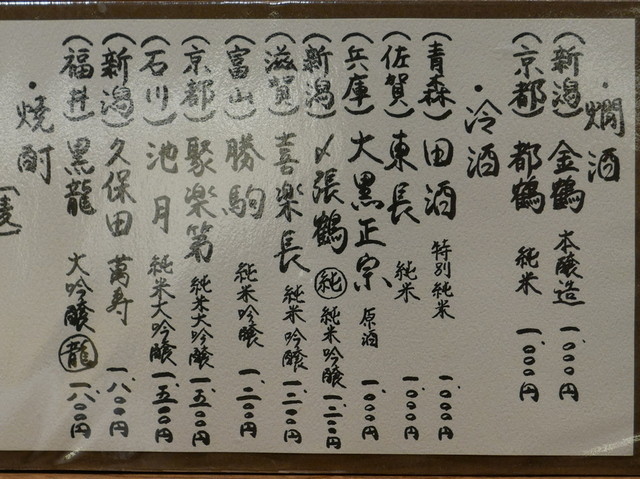 ・燗酒
(新潟)金鶴 本醸造 一、〇〇〇円
(京都)都鶴 純米 一、〇〇〇円
・冷酒
(青森)田酒 特別純米 一、〇〇〇円
(佐賀)東長 純米 一、〇〇〇円
(兵庫)大黒正宗 原酒 一、〇〇〇円
(新潟)〆張鶴 純 純米吟醸 一、二〇〇円
(滋賀)喜楽長 純米吟醸 一、二〇〇円
(富山)勝駒 純米吟醸 一、二〇〇円
(京都)聚楽第 純米大吟醸 一、五〇〇円
(石川)池月 純米大吟醸 一、五〇〇円
(新潟)久保田 萬寿 一、八〇〇円
(福井)黒龍 大吟醸 龍 一、八〇〇円
・焼酎